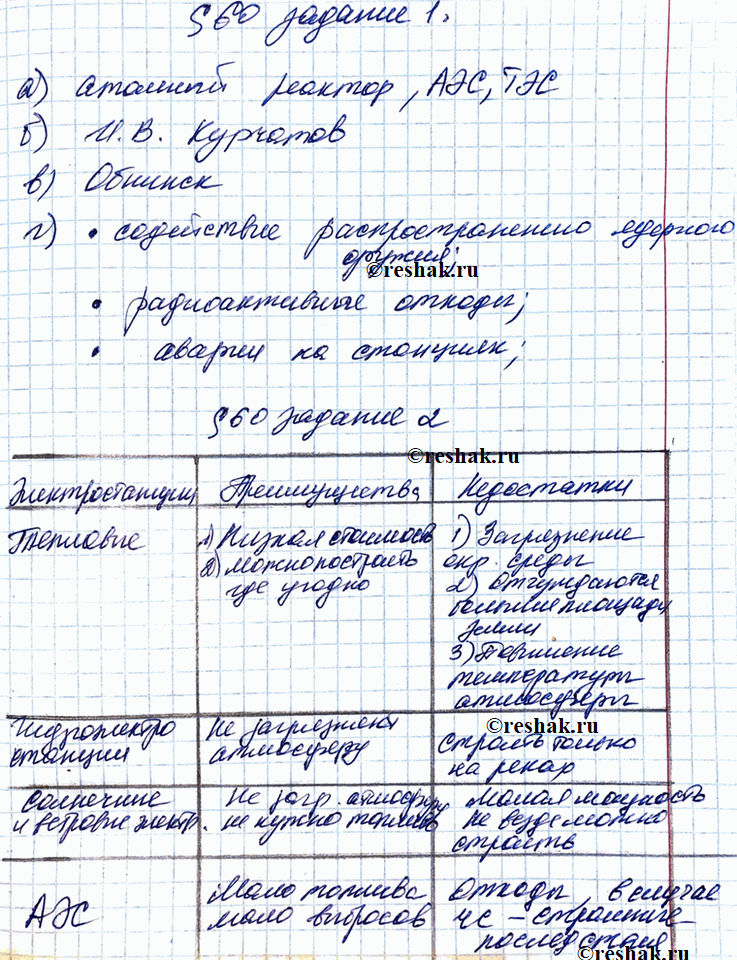 §60 задание 1.
а) атомный реактор, АЭС, ТЭС
б) И.В. Курчатов
в) Обнинск
г) • содействие распространению ядерного
оружия;
©reshak.ru
• радиоактивные отходы;
• аварии на станциях;
§60 задание 2
©reshak.ru
Электростанции Преимущества Недостатки
Тепловые
1) Низкая стоимость
2) можно построить
где угодно
1) Загрязнение
окр. среды
2) Отчуждаются
большие площади
земли
3) Повышение
температуры
атмосферы
Гидроэлектро
станции
Не загрязняют
атмосферу
©reshak.ru
Строить только
на реках
Солнечные
и ветровые электр.
Не загр. атмосферу
не нужно топливо
Малая мощность
Не везде можно
строить
АЭС
Мало топлива
мало выбросов
Отходы, в случае
ЧС – страшные
последствия
©reshak.ru